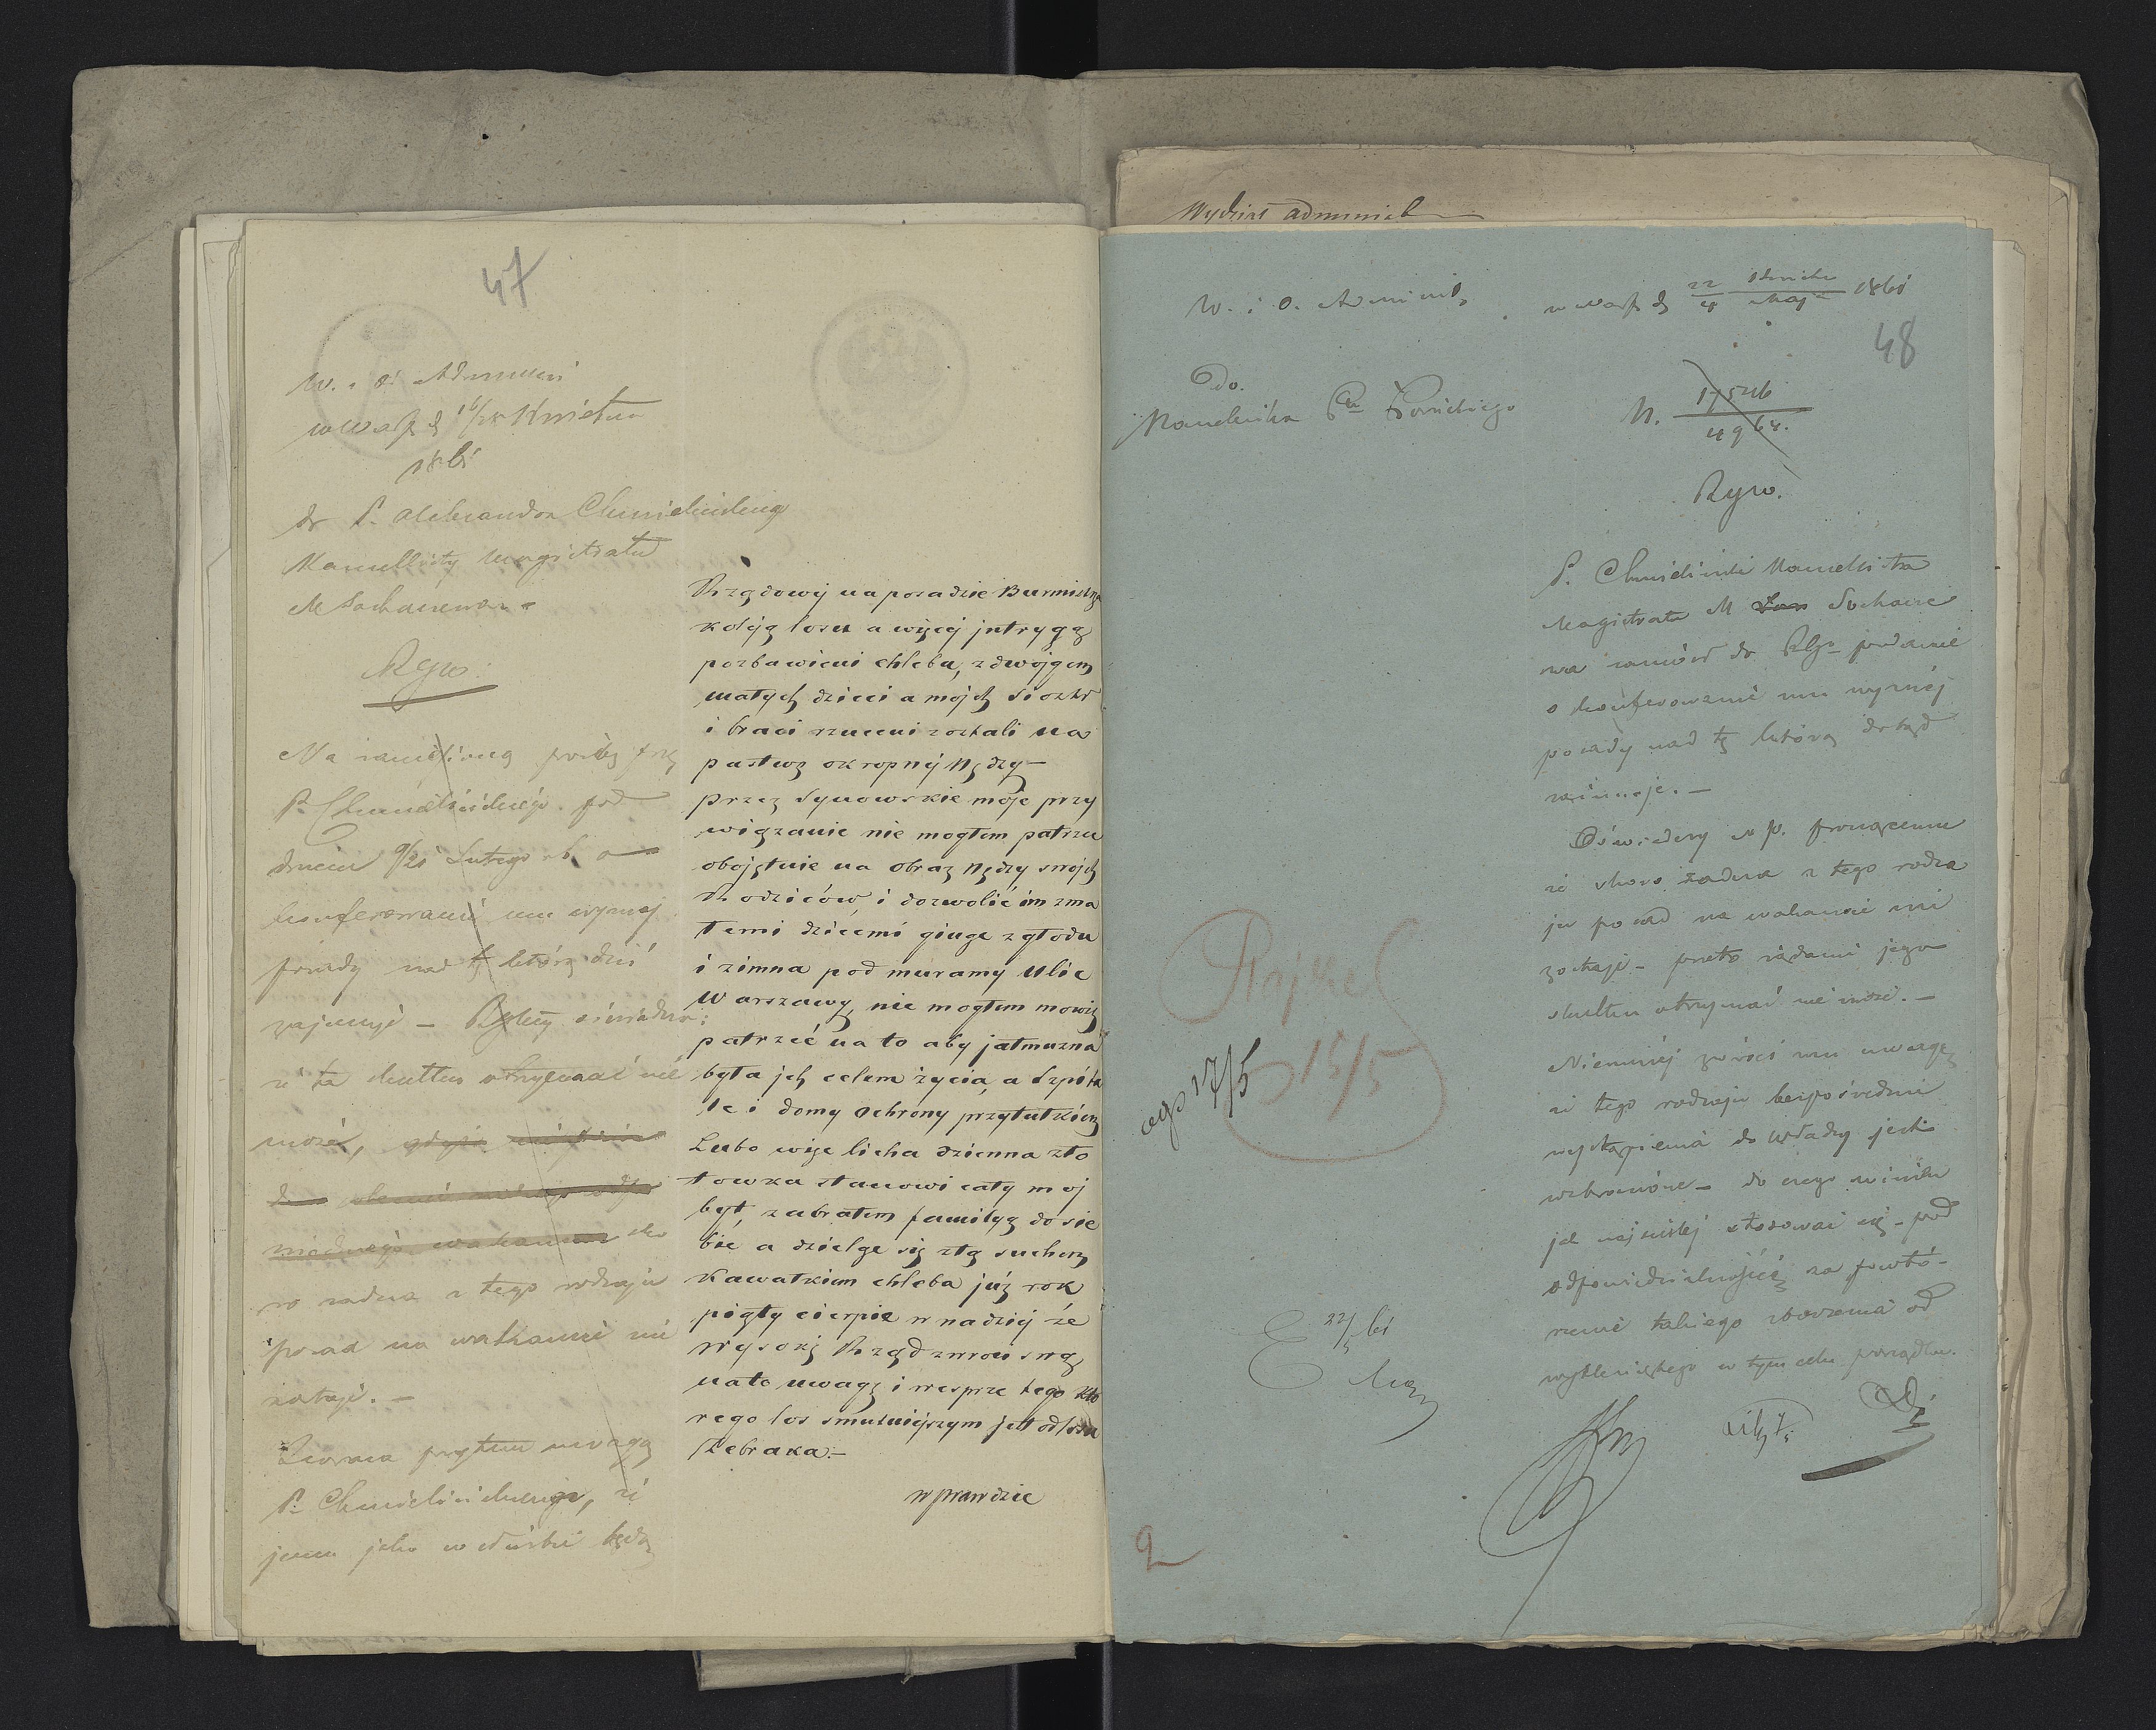 47
W. i O. Admini
w Warsz d 16/28 Kwietnia
1861
do P. Aleksandra Chmielińskiego
Kancellisty Magistratu
M Sochaczewa
RGW.
Na zaniesioną prośbę przez
P. Chmielińskiego pod
dniem 9/21 Lutego rb o
konferowanie mu wyższej
posady nad tę którą dziś
zajmuje — oświadcza:
iż ta skutku otrzymać nie
może, gdyż
sko
ro żadna z tego rodzaju
posad na wakansie nie
zostaje. —
Zwraca przytem uwagę
P. Chmielińskiego, iż
jemu jako w służbie będą
Rządowéj na posadzie Burmistrza
koléją losu a więcéj intrygą
pozbawieni chleba, z dwojgiem
małych dzieci a mojch sióstr
i braci rzuceni zostali na
pastwę okropnéj nędzy —
przez Synowskie moje przy
wiązanie nie mogłem patrzeć
obojętnie na obraz nędzy swojch
Rodziców, i dozwolić im z ma
łemi dziećmi ginąć z głodu
i zimna pod muramy ulic
Warszawy, nie mogłem mowię
patrzéć na to aby jałmużna
była jch celem życia, a Szpita
le i domy ochrony przytułkiem
Lubo więc licha dzienna zło
towka stanowi cały moj
byt, zabrałem familyą do sie
bie a dzieląc się złą suchem
kawałkiem chleba już rok
piąty cierpię w nadziéj że
wysoki Rząd zwroci swą
na to uwagę i wesprze tego któ
rego los smutniejszym jest od losu
Żebraka. —
wprawdzie
Wydział administ
W. i O. Admini.
w Warsz d 22/4 Kwietnia/Maja 1861
48
Do.
Naczelnika Ptu Łowickiego
N. 17546/4964.
RGW.
P. Chmieliński Kancellista
Magistratu M Sochacze
wa zaniósł do RGo podanie
o konferowanie mu wyższéj
posady nad tę którą dotąd
zajmuje. —
Oświadczy W P. proszącemu
iż skoro żadna z tego rodza
ju posad na wakansie nie
zostaje — przeto żądanie jego
skutku otrzymać nie może. —
Niemniéj zwróci mu uwagę
iż tego rodzaju bezpośrednie
wystąpienia do Władzy jest
wzbronione — do czego winien
jak najściślej stosować się — pod
odpowiedzialnością za powtó-
rzenie takiego zboczenia od
wytkniętego w tym celu porządku.
15/5
17/5
22/5 61
2